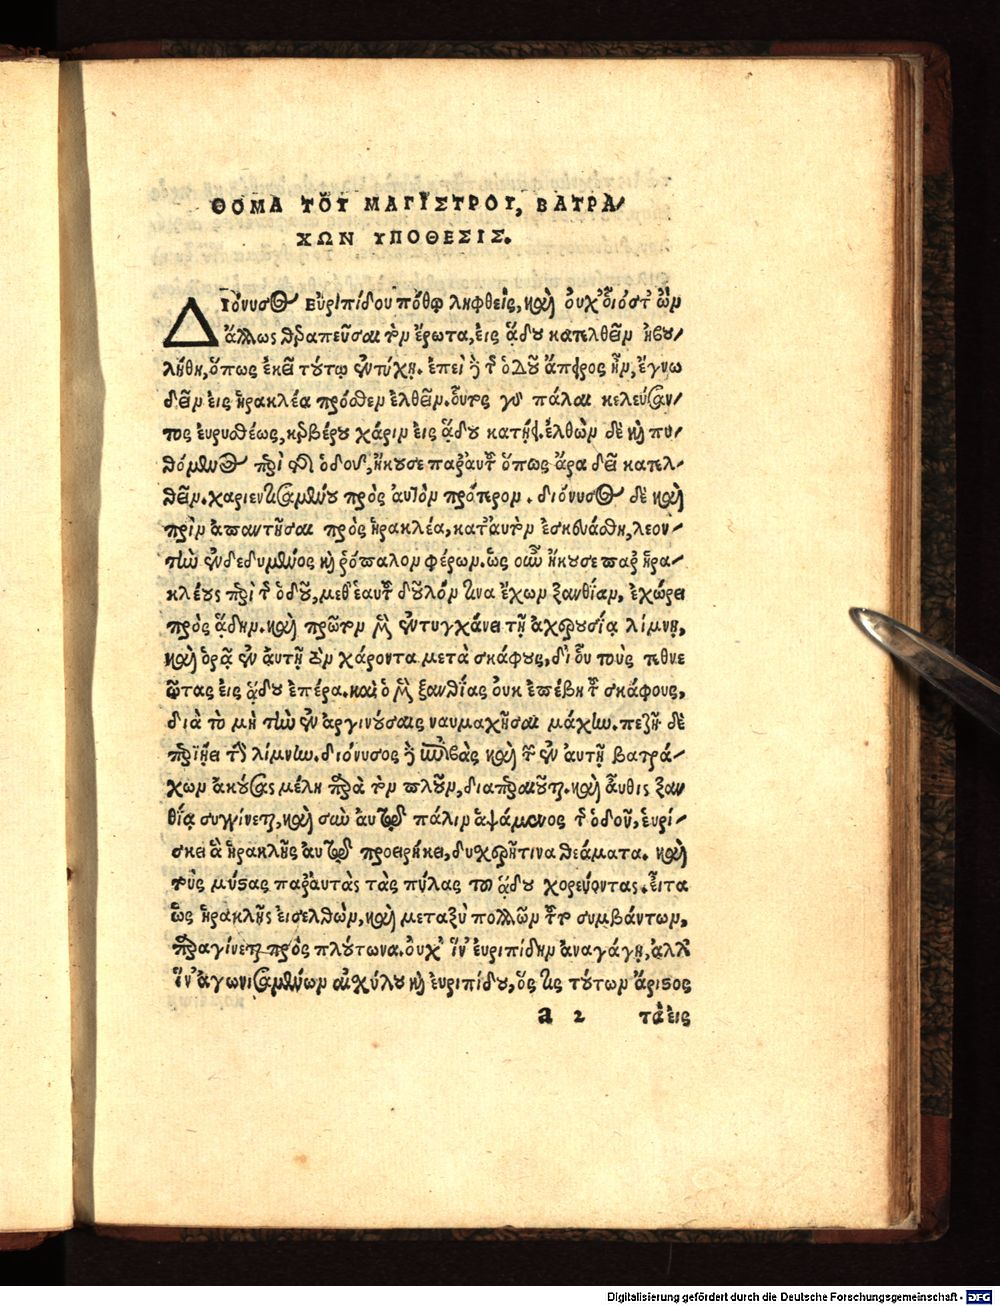 ΘΟΜΑ ΤΟΥ ΜΑΓΙΣΤΡΟΥ, ΒΑΤΡΑ-
ΧΩΝ ΥΠΟΘΕΣΙΣ.
ΔΙόνυσος Εὐριπίδου πόθῳ ληφθεὶς, καὶ οὐχ οἷόστ' ὢν
ἄλλως θεραπεῦσαι τὸν ἔρωτα, εἰς ᾅδου κατελθεῖν ἠβου-
λήθη, ὅπως ἐκεῖ τούτῳ ἐντύχῃ. ἐπεὶ δὲ τῆς ὁδοῦ ἄπειρος ἦν, ἔγνω
δεῖν εἰς ἡρακλέα πρόσθεν ἐλθεῖν. οὗτος γὰρ πάλαι κελεύσαν-
τος εὐρυσθέως, κερβέρου χάριν εἰς ᾅδου κατῄει. ἐλθὼν δὲ καὶ πυ-
θόμενος περὶ τῆς ὁδοῦ, ἤκουσε παρ' αὐτοῦ ὅπως ἄρα δεῖ κατελ-
θεῖν. χαριεντισαμένου πρὸς αὐτὸν πρότερον. διόνυσος δὲ καὶ
πρὶν ἀπαντῆσαι πρὸς ἡρακλέα, κατ' αὐτὸν ἐσκευάσθη, λεον-
τὴν ἐνδεδυμένος καὶ ῥόπαλον φέρων. ὡς οὖν ἤκουσε παρ' ἡρα-
κλέους περὶ τῆς ὁδοῦ, μεθ' ἑαυτοῦ δοῦλόν τινα ἔχων ξανθίαν, ἐχώρει
πρὸς ᾅδην. καὶ πρῶτον μὲν ἐντυγχάνει τῇ ἀχερουσίᾳ λίμνῃ,
καὶ ὁρᾷ ἐν αὐτῇ τὸν χάροντα μετὰ σκάφους, δι' οὗ τοὺς τεθνε
ῶτας εἰς ᾅδου ἐπέρα. καὶ ὁ μὲν ξανθίας οὐκ ἐπέβη τοῦ σκάφους,
διὰ τὸ μὴ τὴν ἐν ἀργινούσαις ναυμαχῆσαι μάχην. πεζῇ δὲ
περιῄει τὴν λίμνην. διόνυσος δὲ ἐπιβὰς καὶ τῶν ἐν αὐτῇ βατρά-
χων ἀκούσας μέλη παρὰ τὸν πλοῦν, διαπεραιοῦται. καὶ αὖθις ξαν
θίᾳ συγγίνεται, καὶ σὺν αὐτῷ πάλιν ἁψάμενος τῆς ὁδοῦ, εὑρί-
σκει ἃ ἡρακλῆς αὐτῷ προειρήκει, δυσχερῆ τινα θεάματα. καὶ
τοὺς μύστας παρ' αὐτὰς τὰς πύλας τοῦ ᾅδου χορεύοντας. εἶτα
ὡς ἡρακλῆς εἰσελθὼν, καὶ μεταξὺ πολλῶν τούτων συμβάντων,
παραγίνεται πρὸς πλούτωνα. οὐχ ἵν' εὐριπίδην ἀναγάγῃ, ἀλλ'
ἵν' ἀγωνισαμένων αἰσχύλου καὶ εὐριπίδου, ὅς τις τούτων ἄριστος
a 2 τὰ εἰς